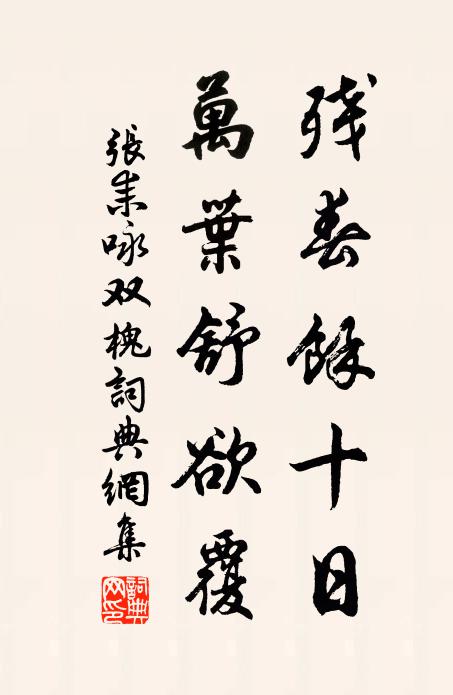 残春餘十日
萬葉舒欲覆
張耒咏双槐詞典網集
詞典网印